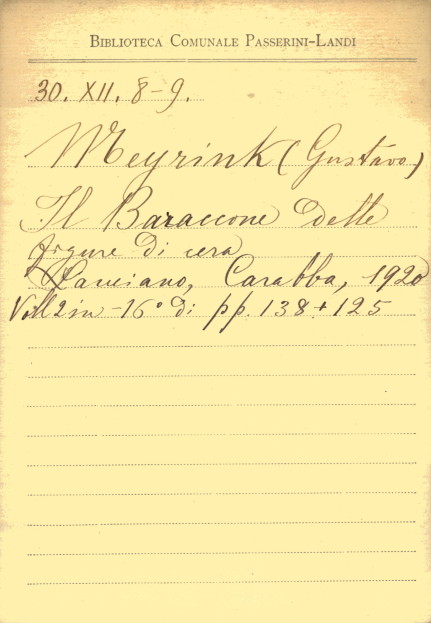 BIBLIOTECA COMUNALE PASSERINI-LANDI
30. XII. 8-9.
Meyrink (Gustavo)
Il Baraccone delle
figure di cera
Lanciano, Carabba, 1920
Voll 2 in-16° di pp. 138+125